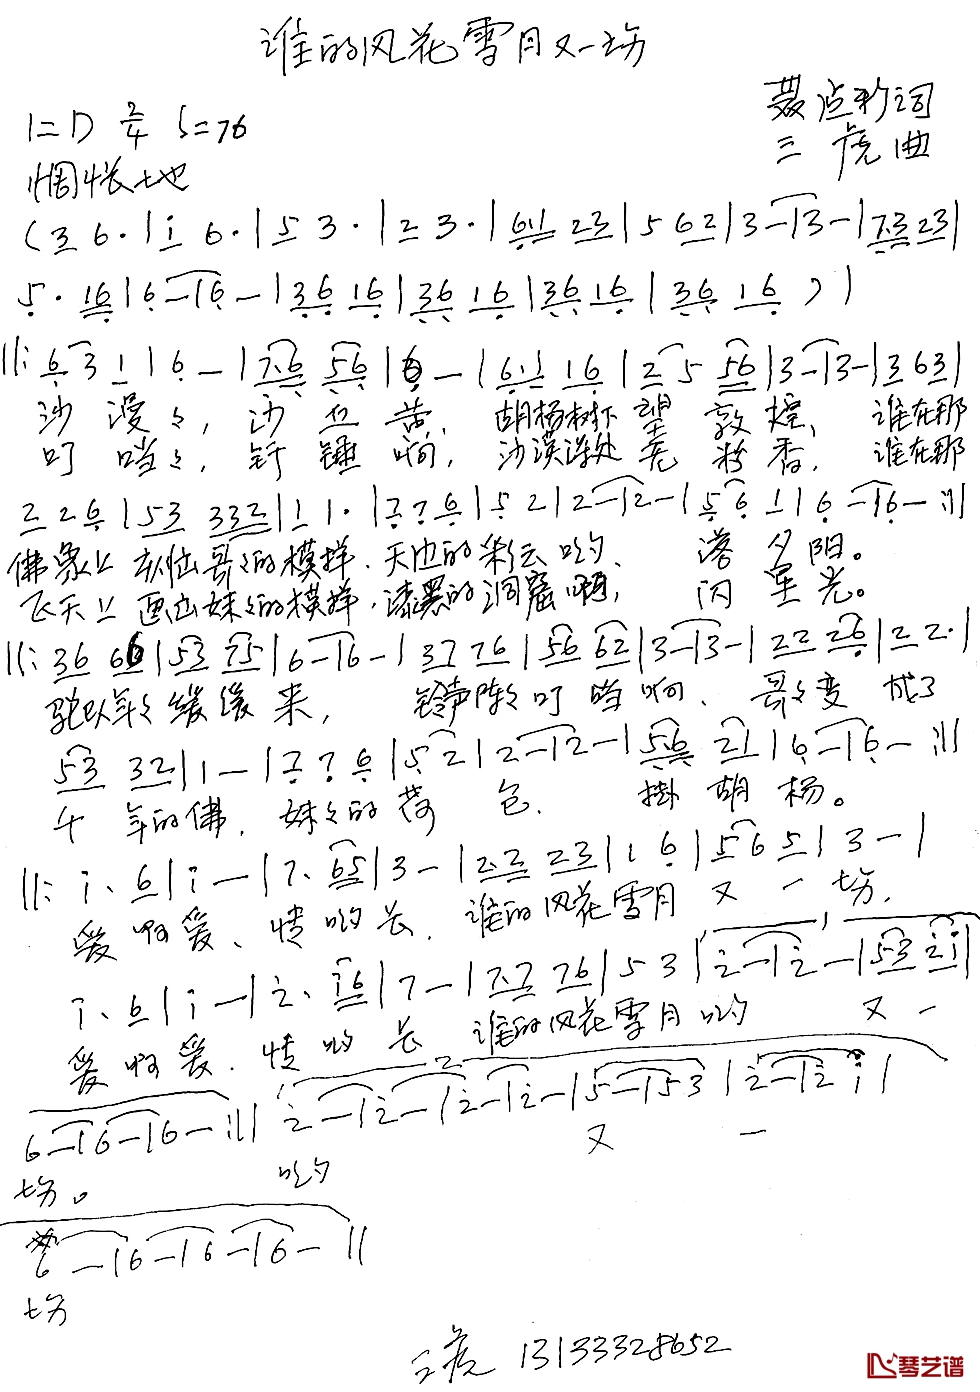 谁的风花雪月又一场
聂点彩词
1=D 2/4 ♩=76
三虎曲
惆怅地
(3 6·|i 6·|5 3·|2 3·|61 23|5 62|3-|3-|73 23|
5·16|6-|6-|36 16|36 16|36 16|36 16)|
||:6 3 1|6-|76 56|6-|61 16|2 5 56|3-|3-|3 63|
沙漫々,沙丘黄,胡杨树下望敦煌,谁在那
叮当々,钎锤响,沙漠深处 粉香,谁在那
2 2 6|53 332|1 1·|7 7 6|5 2|2-|2-|5 6 1|6-|6-:||
佛象上 哥々的模样.天边的彩云哟、落夕阳。
飞天上画出妹々的模样,漆黑的洞窟啊,闪星光。
||:36 66|53 75|6-|6-|37 76|56 62|3-|3-|22 26|22·|
驼队年々缓缓来,铃声阵々叮当响、哥々变成了
53 32|1-|7 7 6|5 2|2-|2-|56 21|6-|6-:||
千年的佛,妹々的荷包.掛胡杨。
||:i·6|i-|7·65|3-|22 23|1 6|5 6 5|3-|
爱啊爱、情哟长.谁的风花雪月又一场.
i·6|i-|2·i6|7-|77 76|5 3|2-|2-|53 2i|
爱啊爱.情哟长 谁的风花雪月哟 又一
6-|6-|6-:|| 2-|2-|2-|2-|5-|53|2-|2 i|
场。哟 又 一
6-|6-|6-|6-||
场
三虎 13133328652
琴艺谱